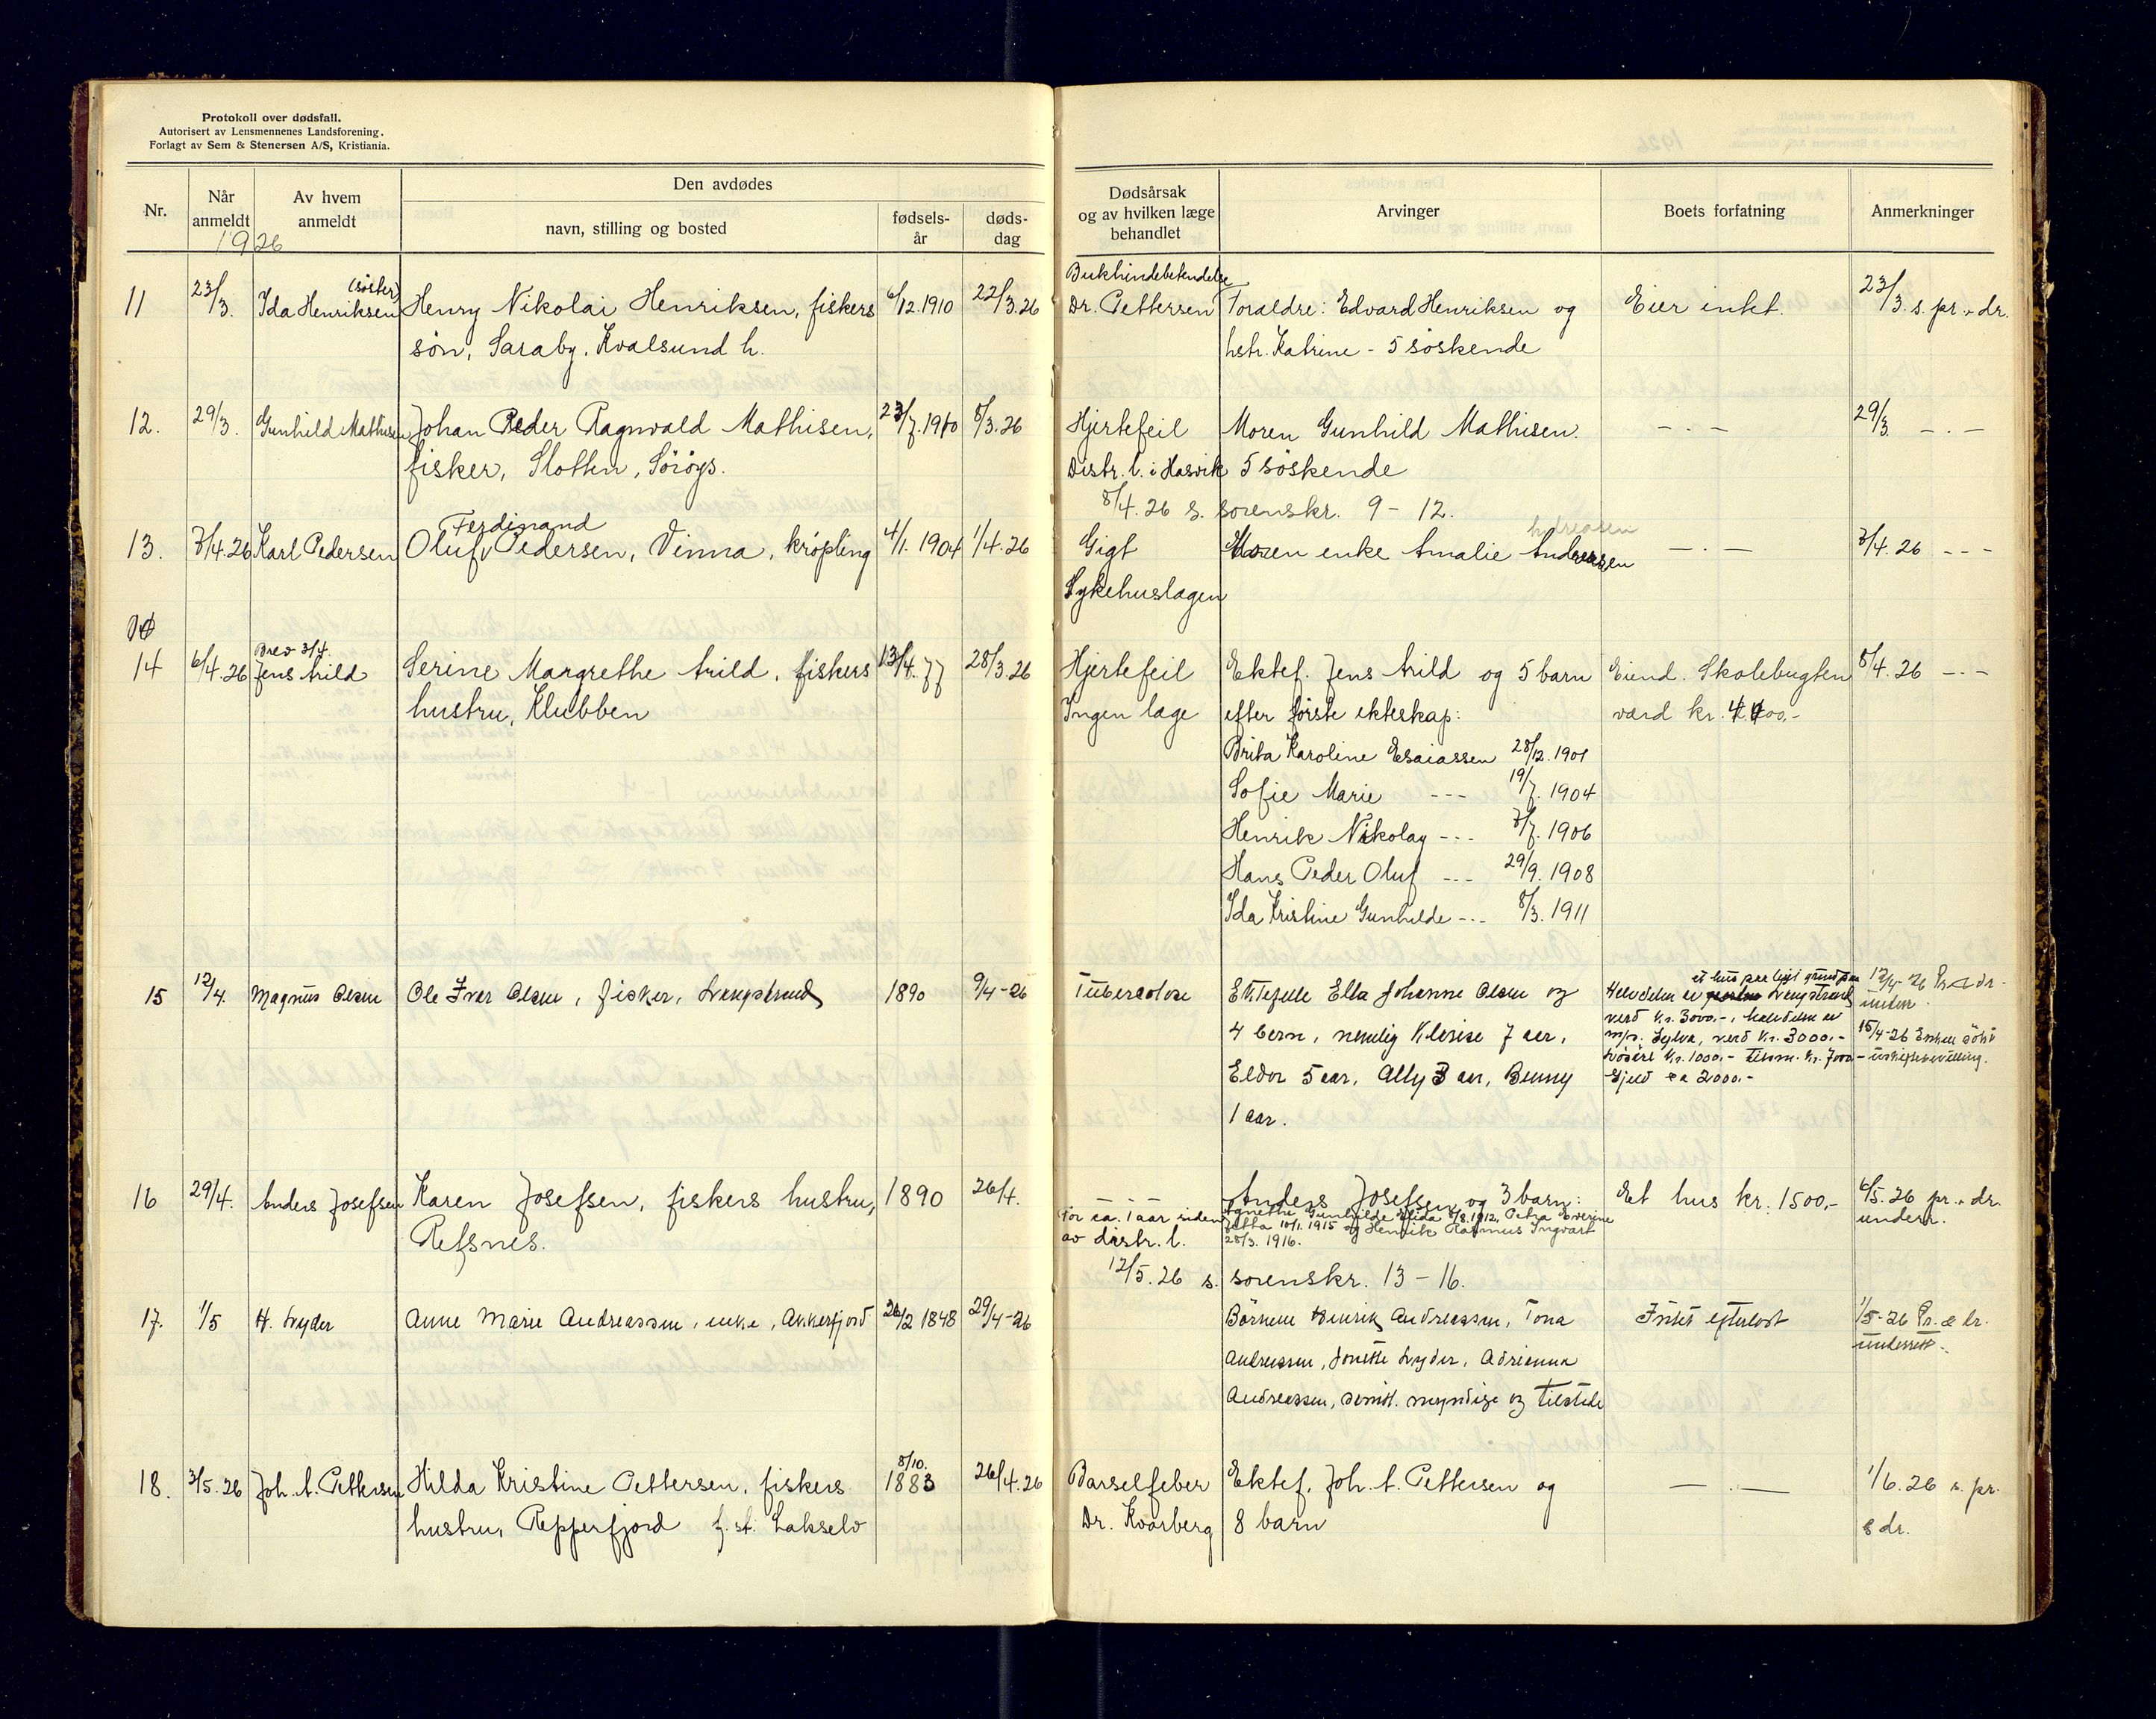 Protokoll over dødsfall.
Autorisert av Lensmennenes Landsforening.
Forlagt av Sem & Stenersen A/S, Kristiania.
Nr.
Når anmeldt
Av hvem anmeldt
Den avdødes
navn, stilling og bosted
fødsels-år
døds-dag
Dødsårsak og av hvilken læge behandlet
Arvinger
Boets forfatning
Anmerkninger
1926
11 23/3. Ida Henriksen (søster) Henry Nikolai Henriksen, fiskers 6/12.1910 22/3.26 Bukhindebetendelse Dr. Pettersen Foraldre: Edvard Henriksen og Eier intet. 23/3. s. pr. + dr.
søn, Saraby, Kvalsund h. hstr. Katrine - 5 søskende
12. 29/3. Gunhild Mathisen Johan Peder Ragnvald Mathisen, 23/7.1910 8/3.26 Hjertefeil Moren Gunhild Mathisen. - . - 29/3. - . -
fisker, Slotten, Sörøys. Distr. l. i Hasvik 5 søskende
8/4.26 s. sorenskr. 9 - 12.
13. 7/4.26 Karl Pedersen Oluf Ferdinand Pedersen, Vinna, krøpling 4/1.1904 1/4.26 Gigt Moren enke Amalie Andreassen - . - 7/4.26 - - -
Sykehuslægen
14 6/4.26 Brev 3/4. Jens Arild Serine Margrethe Arild, fiskers 13/4.77 28/3.26 Hjertefeil Ektef. Jens Arild og 5 barn Eiend. Skolebugten 8/4.26 - . -
hustru, Klubben Ingen læge efter første ekteskap: værd kr.
Brita Karoline Esaiassen 28/12.1901
Sofie Marie - - - 19/7.1904
Henrik Nikolay - - - 7/7.1906
Hans Peder Oluf - - - 29/9.1908
Ida Kristine Gunhilde - - - 8/3.1911
15 12/4. Magnus Olsen Ole Ivar Olsen, fisker, Langstrand 1890 9/4-26 Tuberkolose Ektefelle Ella Johanne Olsen og Halvdelen av et hus paa leiet grund paa Langstrand 12/4-26 Pr. & dr.
4 barn, nemlig Klarise 7 aar, verd kr. 3000.-, halvdelen av underr.
m/sk. Sylva, verd kr. 3000.- 15/4-26 Enken søkt
Eldor 5 aar, Ally 3 aar, Benny løsøre kr. 1000.- tilsm. kr. 7000.- uskiftebevilling.
Gjeld ca 2000.-
1 aar.
16 29/4. Anders Josefsen Karen Josefsen, fiskers hustru, 1890 26/4. Anders Josefsen og 3 barn: Et hus kr. 1500,- 6/5.26 pr. + dr.
Refsnes. For ca. 1 aar siden av distr. l. Agnethe Gunhilde Alida 8/8.1912, Petra Severine underr.
Jetta 10/1.1915 og Henrik Rasmus Ingvart
28/3.1916.
12/5.26 s. sorenskr. 13 - 16.
17. 1/5 H. Lyder Anne Marie Andreassen, enke, Akkarfjord 26/2 1848 29/4-26 Børnene Henrik Andreassen, Tona Intet efterlatt 1/5-26 Pr. & dr.
Andreassen, Jonette Lyder, Adrianna underrett.
Andreassen, samtl. myndige og tilstede
18. 3/5.26 Joh. A. Pettersen Hilda Kristine Pettersen, fiskers 8/10. 1883 26/4.26 Barselfeber Ektef. Joh. A. Pettersen og - . - 1/6.26 s. pr.
hustru, Repperfjord f. st. Lakselv Dr. Kvarberg 8 barn & dr.